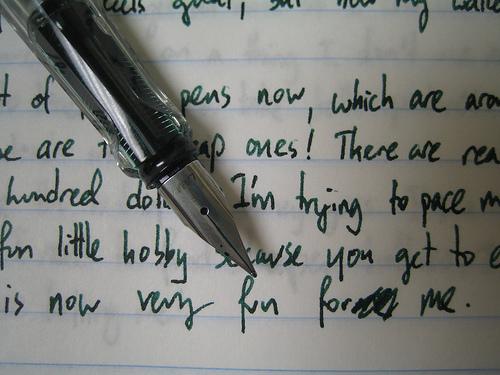 feels great, but now my
t of pens now, which are aro
e are ap ones! There are rea
hundred dol I'm trying to pace m
fun little hobby because you get to e
is now very fun for me.